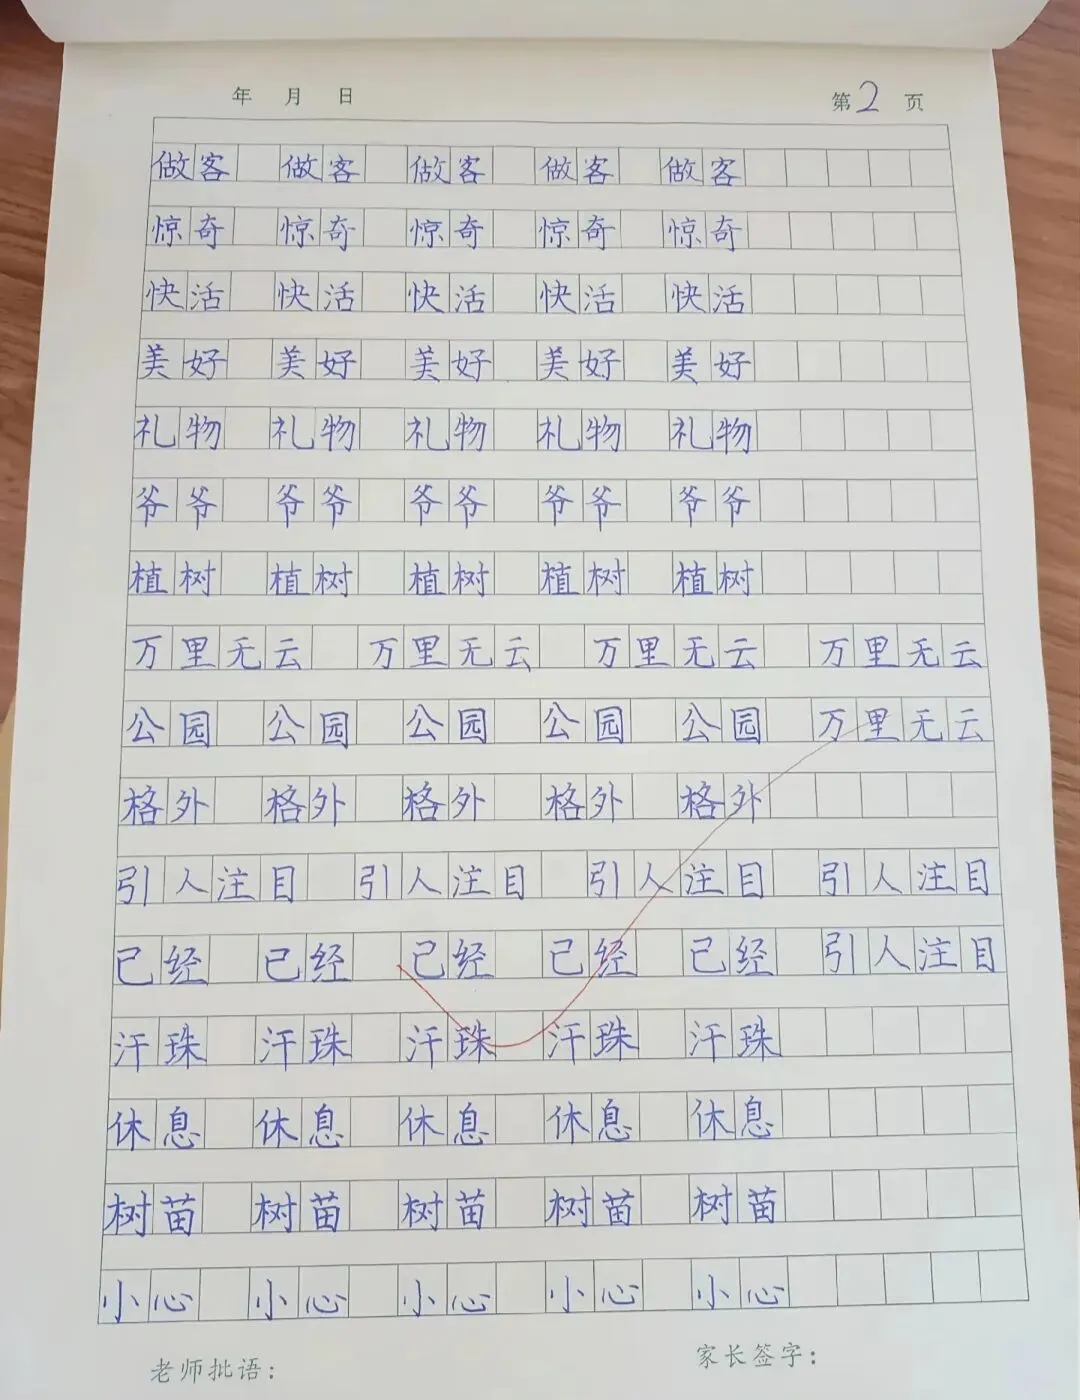 年 月 日 第2页
做客 做客 做客 做客 做客
惊奇 惊奇 惊奇 惊奇 惊奇
快活 快活 快活 快活 快活
美好 美好 美好 美好 美好
礼物 礼物 礼物 礼物 礼物
爷爷 爷爷 爷爷 爷爷 爷爷
植树 植树 植树 植树 植树
万里无云 万里无云 万里无云 万里无云
公园 公园 公园 公园 公园 万里无云
格外 格外 格外 格外 格外
引人注目 引人注目 引人注目 引人注目
已经 已经 已经 已经 已经 引人注目
汗珠 汗珠 汗珠 汗珠 汗珠
休息 休息 休息 休息 休息
树苗 树苗 树苗 树苗 树苗
小心 小心 小心 小心 小心
老师批语： 家长签字：